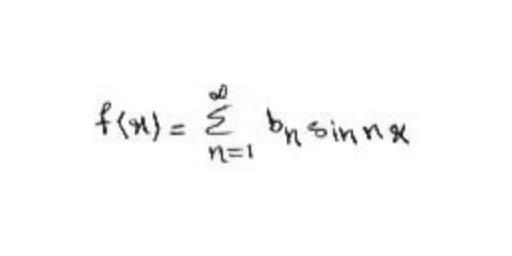 f(x) = ∞∑n=1 bn sin nx